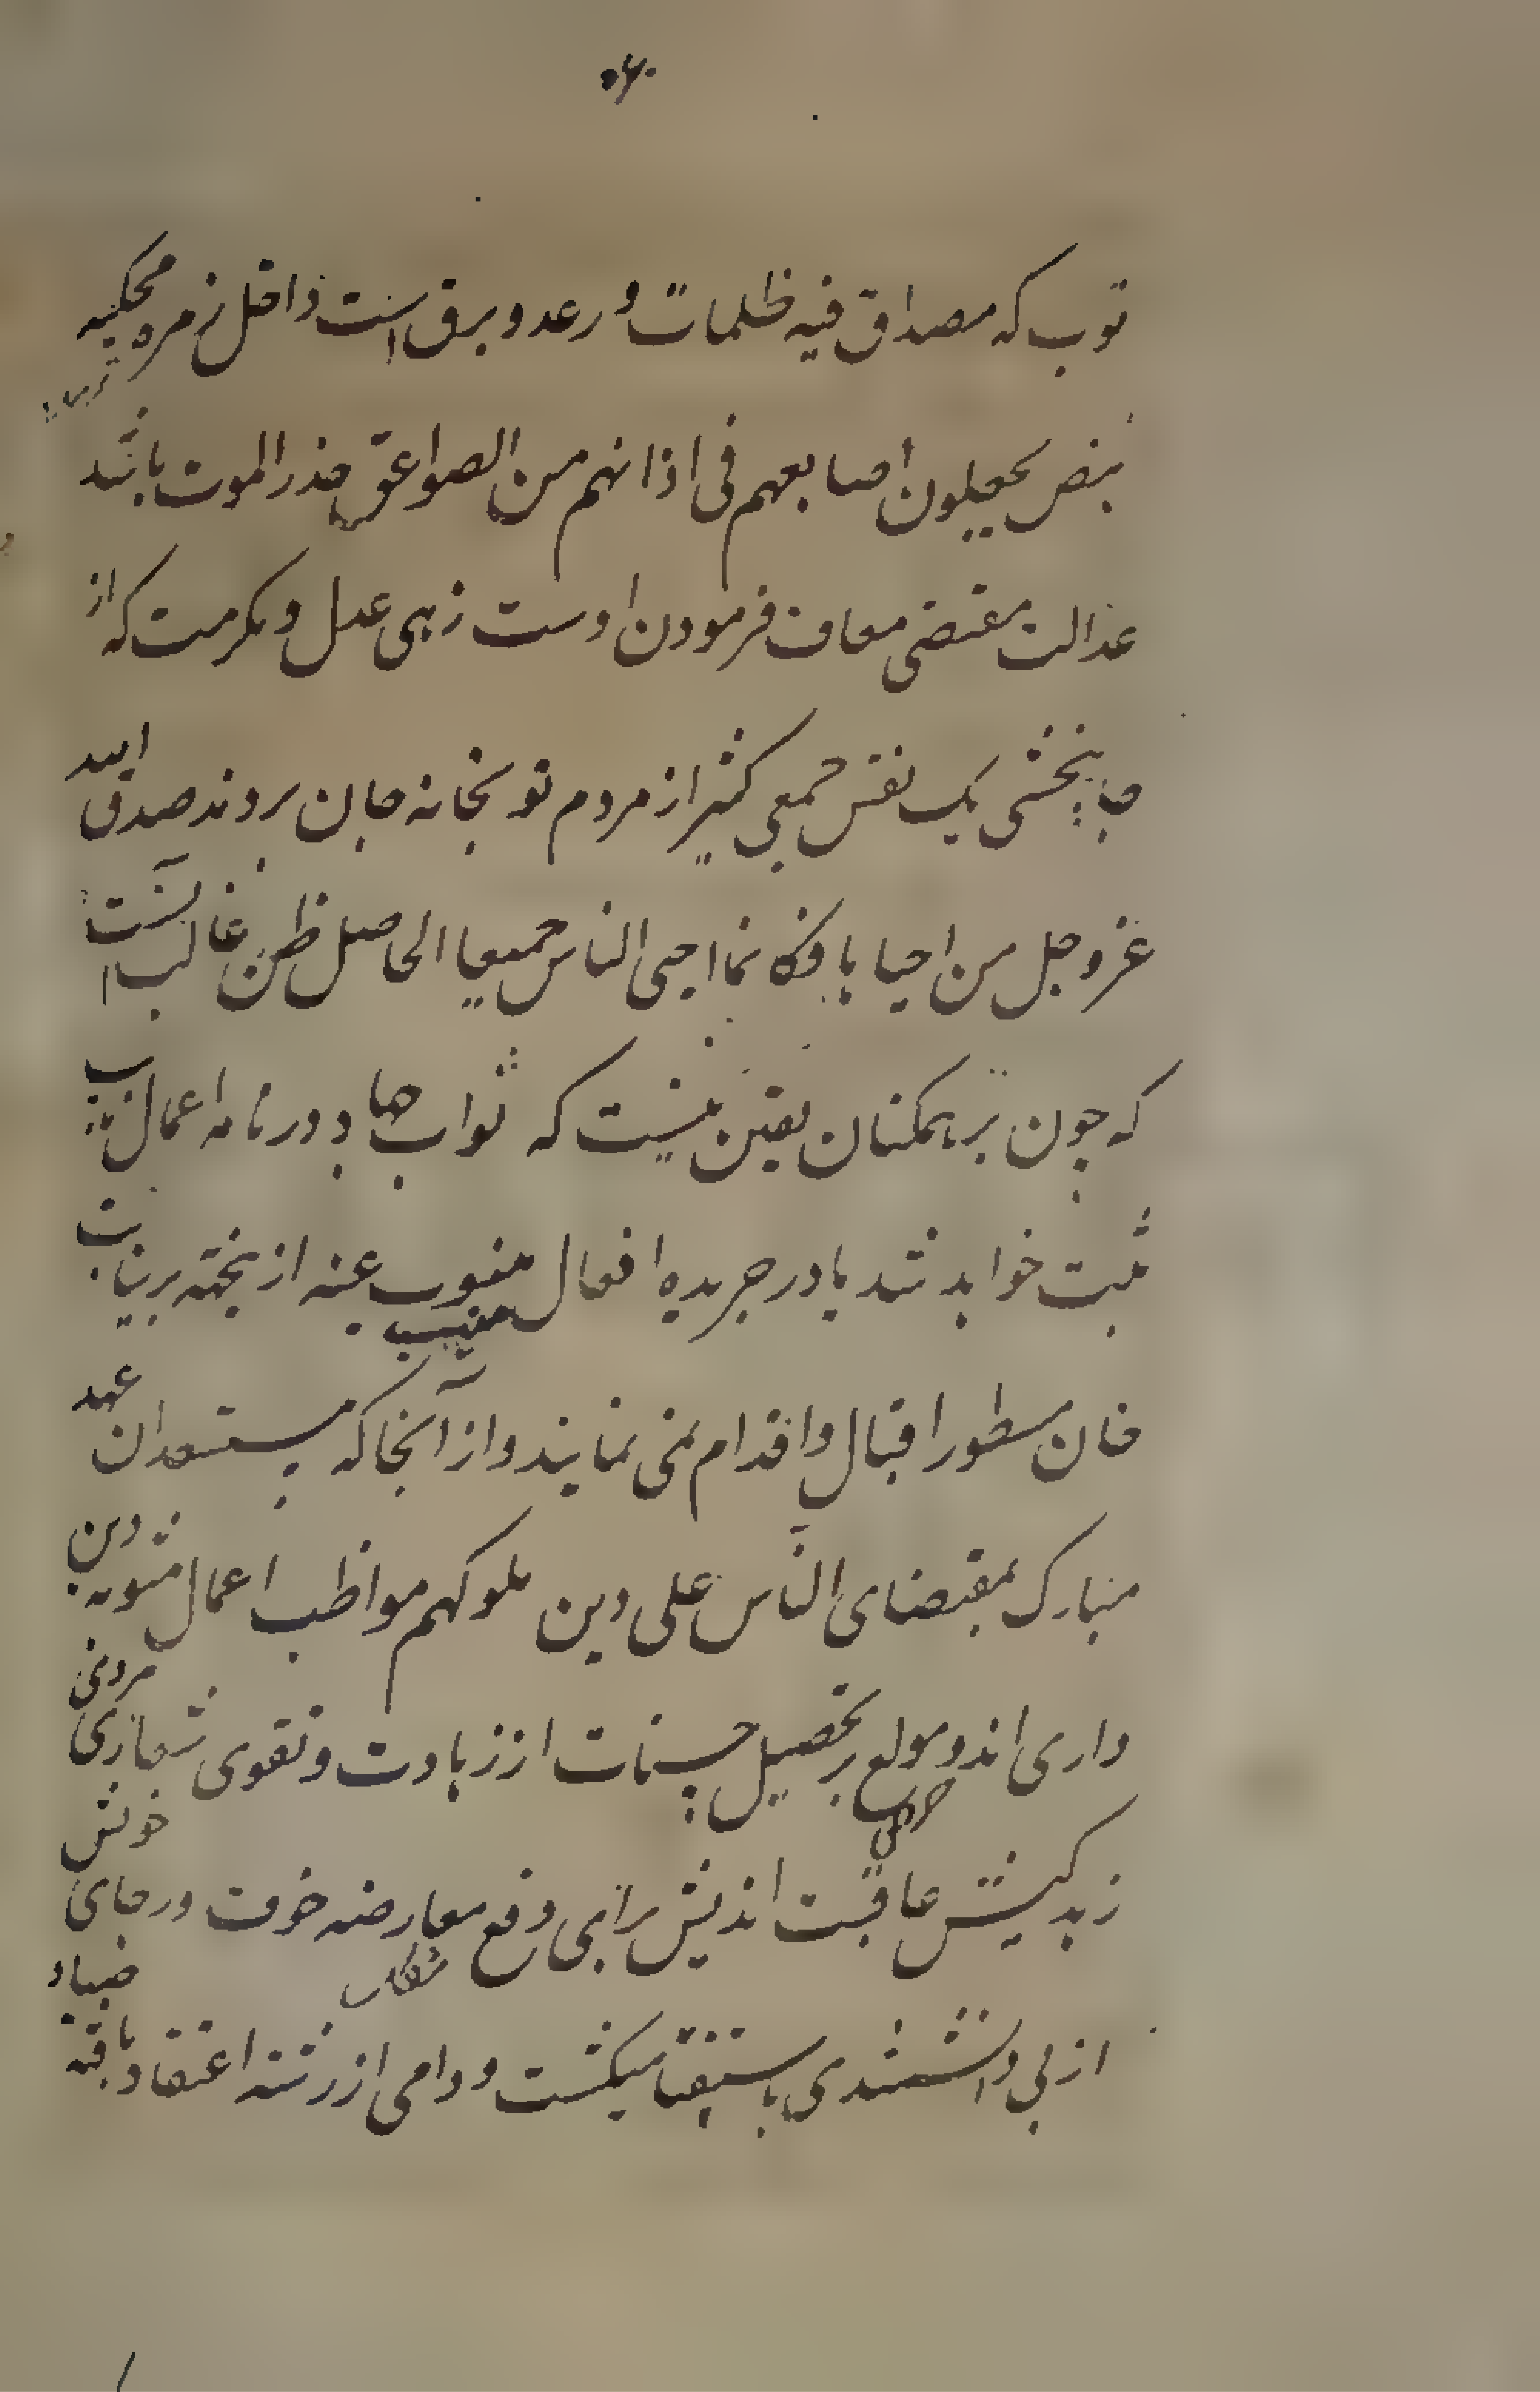 ۰۶۰
توب که مصداق فیه ظلمات و رعد و برق است داخل زمره محکیه
بنص یجعلون اصابعهم فی اذانهم من الصواعق حذر الموت باشد
عدالت مقتضی معاف فرمودن اوست زهی عدل و مکرمت که از
جانبخشی یک نفس جمعی کثیر از مردم توبخانه جان بردند صدق الله
عز و جل من احیاها فکانما احیی الناس جمیعا الحاصل ظن غالب آنست
که چون بر همکنان یقین نیست که ثواب جهاد در نامه اعمال نایب
ثبت خواهد شد یا در جریده افعال منوب عنه ازینجهته بر نیابت
منیب
خان مسطور اقبال و اقدام نمی نمایند و از آنجا که مستعدان عهد
مبارک بمقتضای الناس علی دین ملوکهم مواظب اعمال مثوبه دین
داری اند و مولع بر تحصیل حسنات از زیادت و تقوی شعاری مردی
حریص
زهد کیش عاقبت اندیش برای دفع معارضه خوف و رجای خویش
از پی دانشمندی باستفتا میکشت و دامی از رشته اعتقاد بافته ضیاء